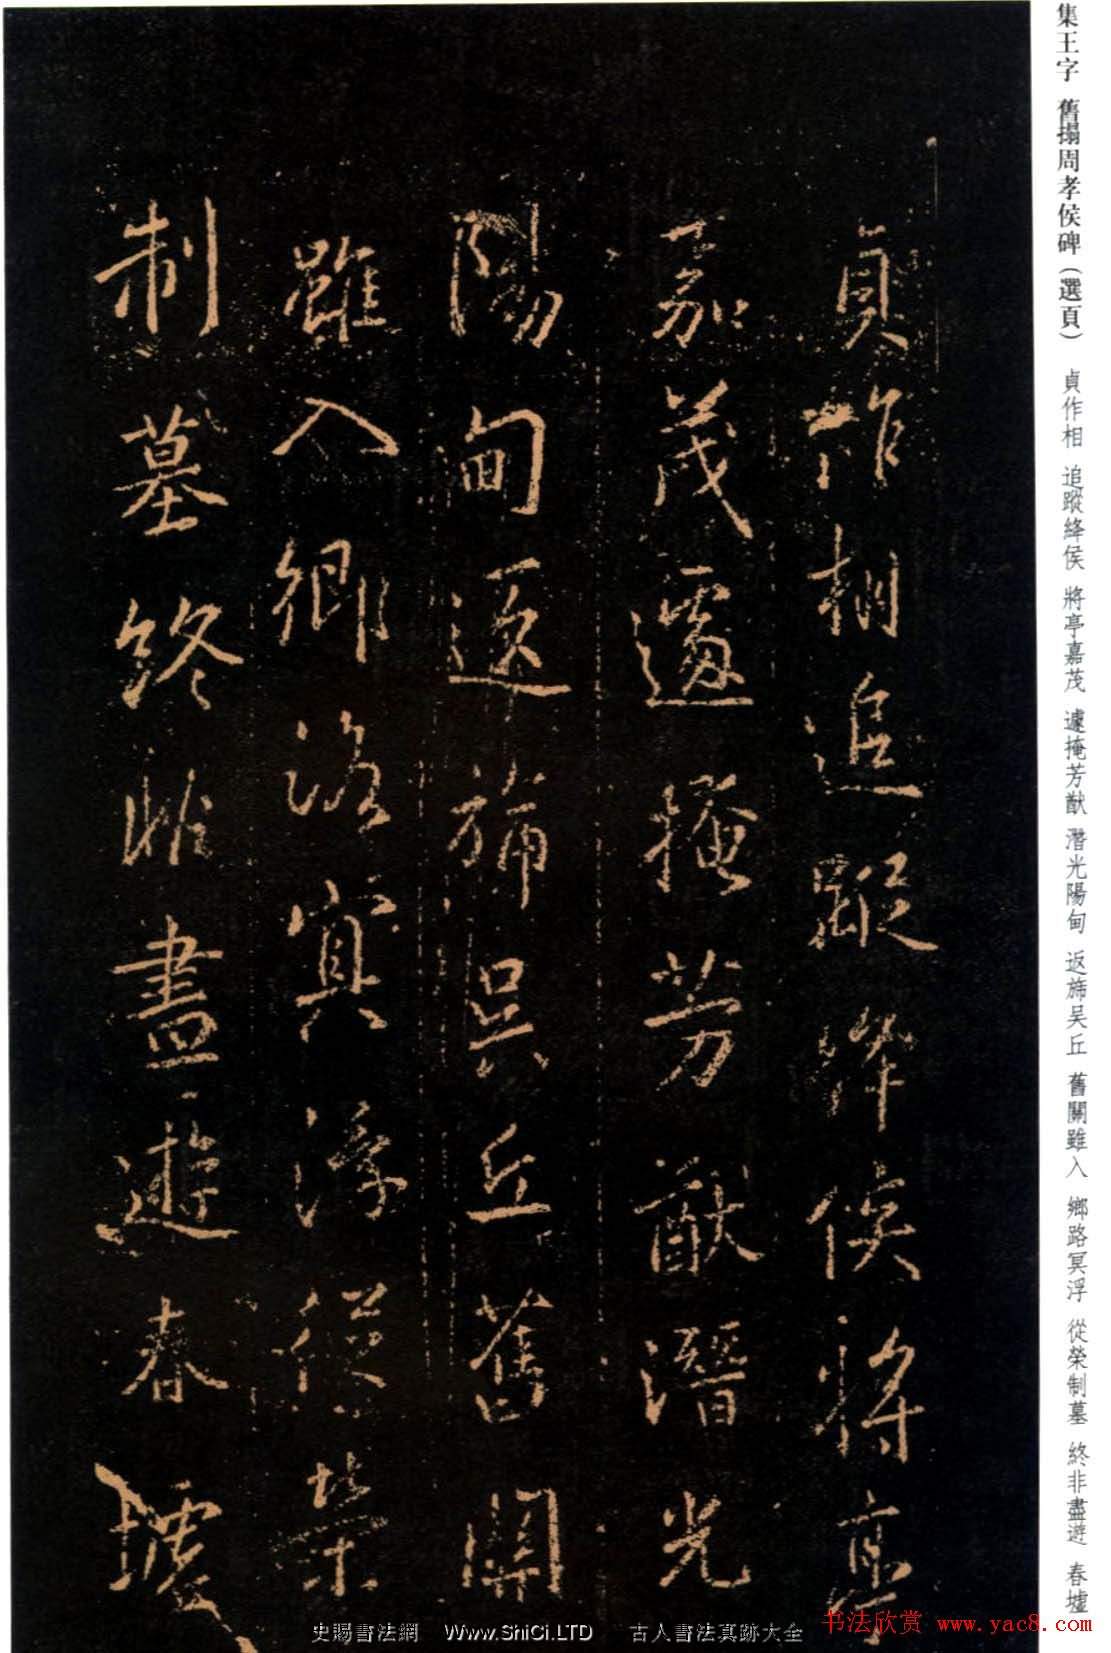 集王字 舊搨周孝侯碑（選頁） 貞作相 追蹤絳侯 將亭嘉茂 遽掩芳猷 潛光陽甸 返旆吴丘 舊關雖入 鄉路冥浮 從榮制墓 終非盡遊 春墟
貞作相追蹤絳侯將亭
嘉茂遽掩芳猷潛光
陽甸返旆吴丘舊關
雖入鄉路冥浮從榮
制墓終非盡遊春墟
书法欣赏 www.yac8.com
史賜書法網 Www.ShiCi.LTD 古人書法真跡大全